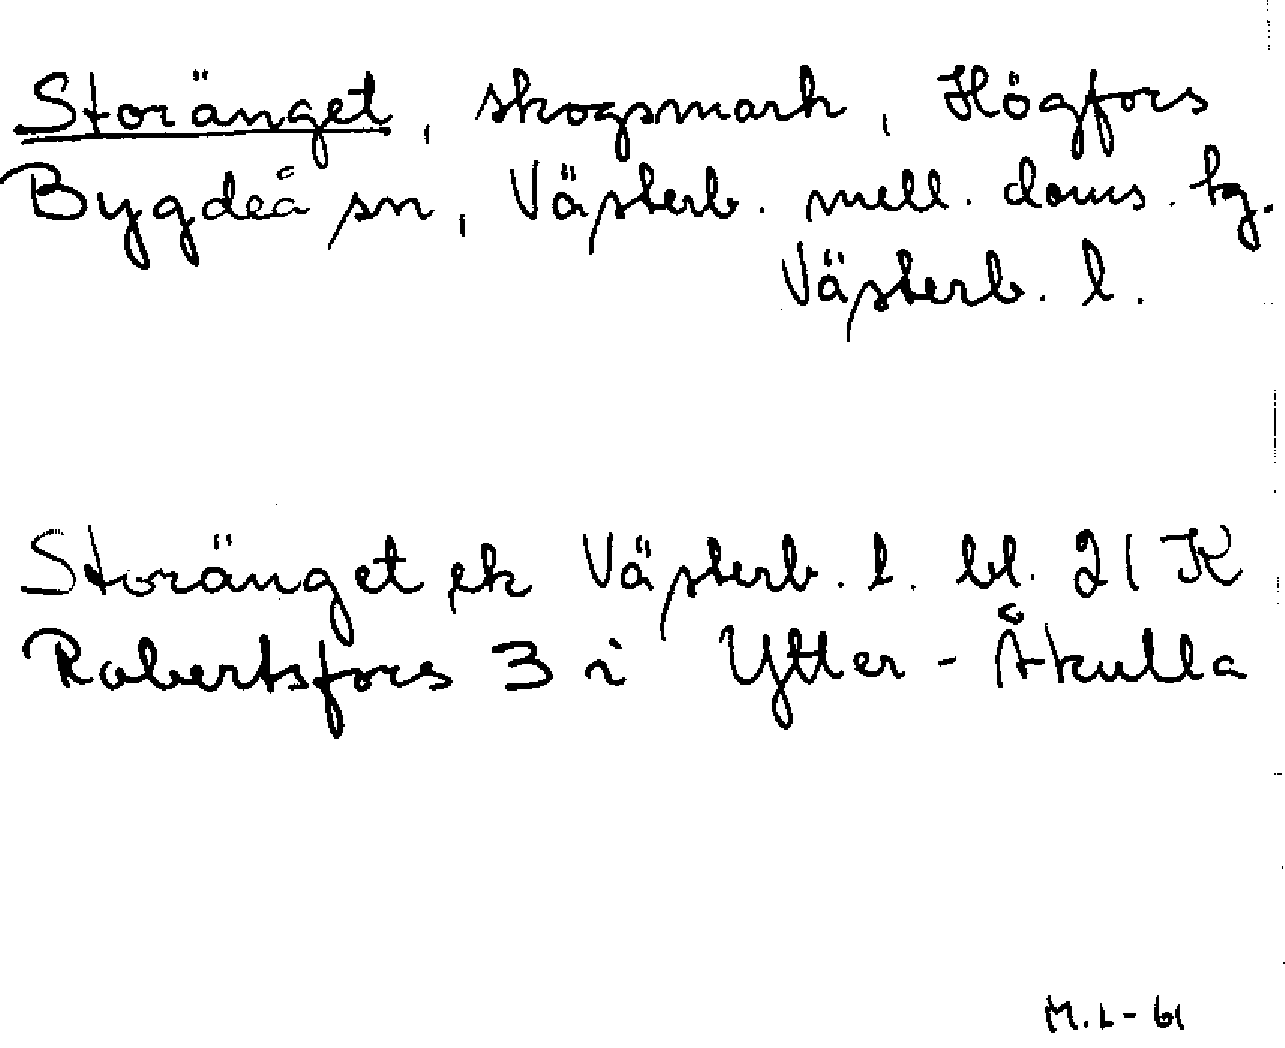 Storänget, skogsmark, Högfors
Bygdeå sn, Västerb. mell. doms. tg.
Västerb. l.
Storänget ek Västerb. l. bl. 21 K
Robertsfors 3 i Ytter-Åkulla
M.L-61